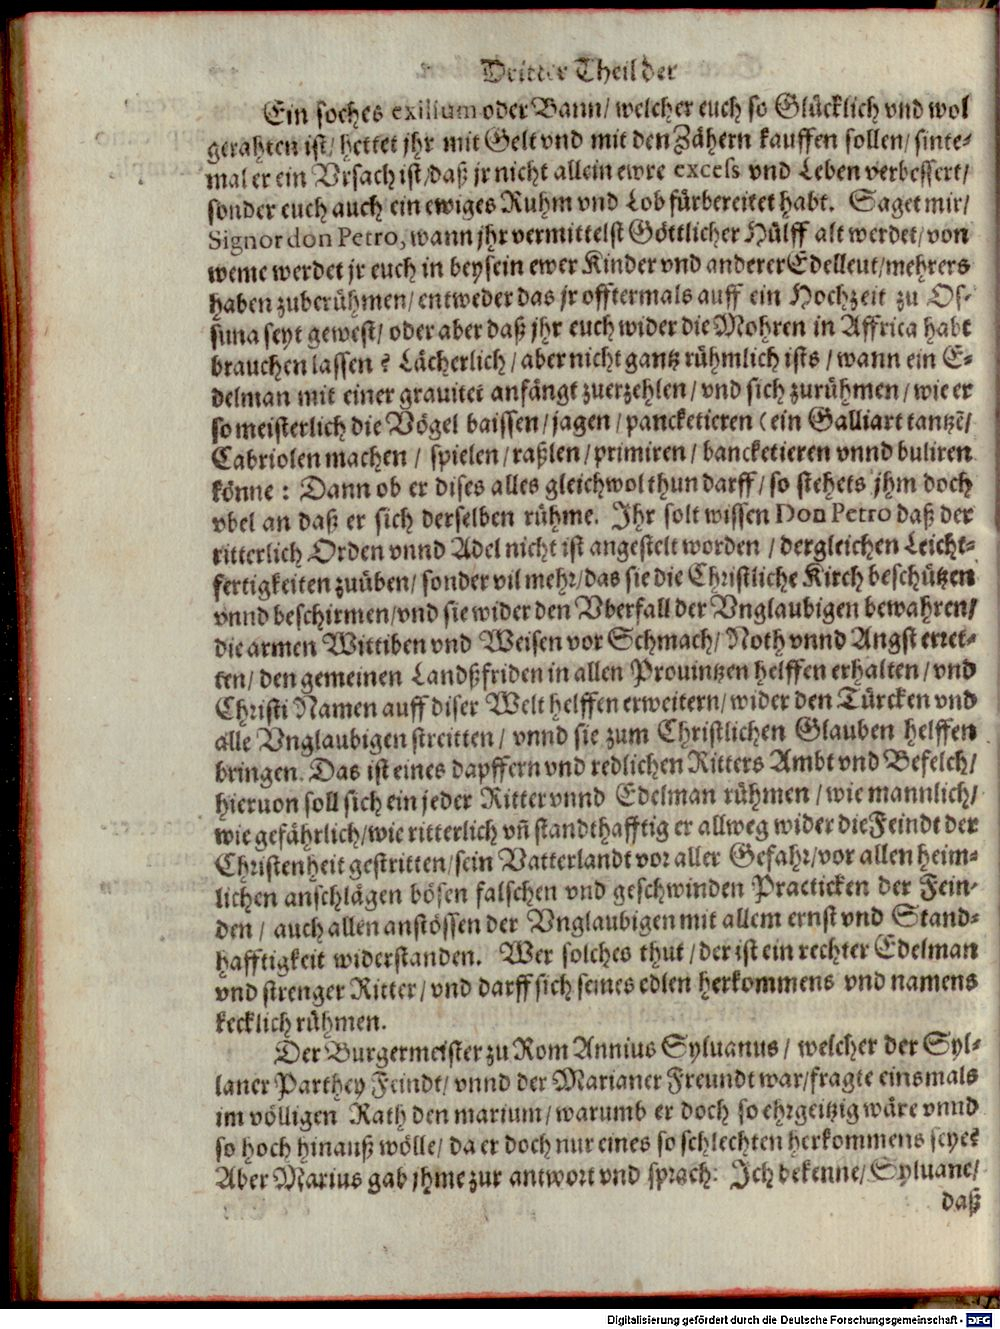 Dritter Theil der
Ein soches exilium oder Bann/ welcher euch so Glücklich vnd wol
gerahten ist/ hettet jhr mit Gelt vnd mit den Zähern kauffen sollen/ sinte-
mal er ein Vrsach ist/ daß jr nicht allein ewre excels vnd Leben verbessert/
sonder euch auch ein ewiges Ruhm vnd Lob fürbereitet habt. Saget mir/
Signor don Petro, wann jhr vermittelst Göttlicher Hülff alt werdet/ von
weme werdet jr euch in beysein ewer Kinder vnd anderer Edelleut/ mehrers
haben zuberühmen/ entweder das jr offtermals auff ein Hochzeit zu Os-
suna seyt gewest/ oder aber daß jhr euch wider die Mohren in Affrica habt
brauchen lassen? Lächerlich/ aber nicht gantz rühmlich ists/ wann ein E-
delman mit einer grauitet anfängt zuerzehlen/ vnd sich zurühmen/ wie er
so meisterlich die Vögel baissen/ jagen/ pancketieren (ein Galliart tantzē/
Cabriolen machen/ spielen/ raßlen/ primiren/ bancketieren vnnd buliren
könne: Dann ob er dises alles gleichwol thun darff/ so stehets jhm doch
vbel an daß er sich derselben rühme. Ihr solt wissen Don Petro daß der
ritterlich Orden vnnd Adel nicht ist angestelt worden/ dergleichen Leicht-
fertigkeiten zuüben/ sonder vil mehr/ das sie die Christliche Kirch beschützen
vnnd beschirmen/ vnd sie wider den Vberfall der Vnglaubigen bewahren/
die armen Wittiben vnd Weisen vor Schmach/ Noth vnnd Angst erret-
ten/ den gemeinen Landßfriden in allen Prouintzen helffen erhalten/ vnd
Christi Namen auff diser Welt helffen erweitern/ wider den Türcken vnd
alle Vnglaubigen streitten/ vnnd sie zum Christlichen Glauben helffen
bringen. Das ist eines dapffern vnd redlichen Ritters Ambt vnd Befelch/
hieruon soll sich ein jeder Ritter vnnd Edelman rühmen/ wie mannlich/
wie gefährlich/ wie ritterlich vñ standthafftig er allweg wider die Feindt der
Christenheit gestritten/ sein Vatterlandt vor aller Gefahr/ vor allen heim-
lichen anschlägen bösen falschen vnd geschwinden Practicken der Fein-
den/ auch allen anstössen der Vnglaubigen mit allem ernst vnd Stand-
hafftigkeit widerstanden. Wer solches thut/ der ist ein rechter Edelman
vnd strenger Ritter/ vnd darff sich seines edlen herkommens vnd namens
kecklich rühmen.
Der Burgermeister zu Rom Annius Syluanus/ welcher der Syl-
laner Parthey Feindt/ vnnd der Marianer Freundt war/ fragte einsmals
im völligen Rath den marium/ warumb er doch so ehrgeitzig wäre vnnd
so hoch hinauß wölle/ da er doch nur eines so schlechten herkommens seye?
Aber Marius gab jhme zur antwort vnd sprach: Ich bekenne/ Syluane/
daß
Digitalisierung gefördert durch die Deutsche Forschungsgemeinschaft - DFG